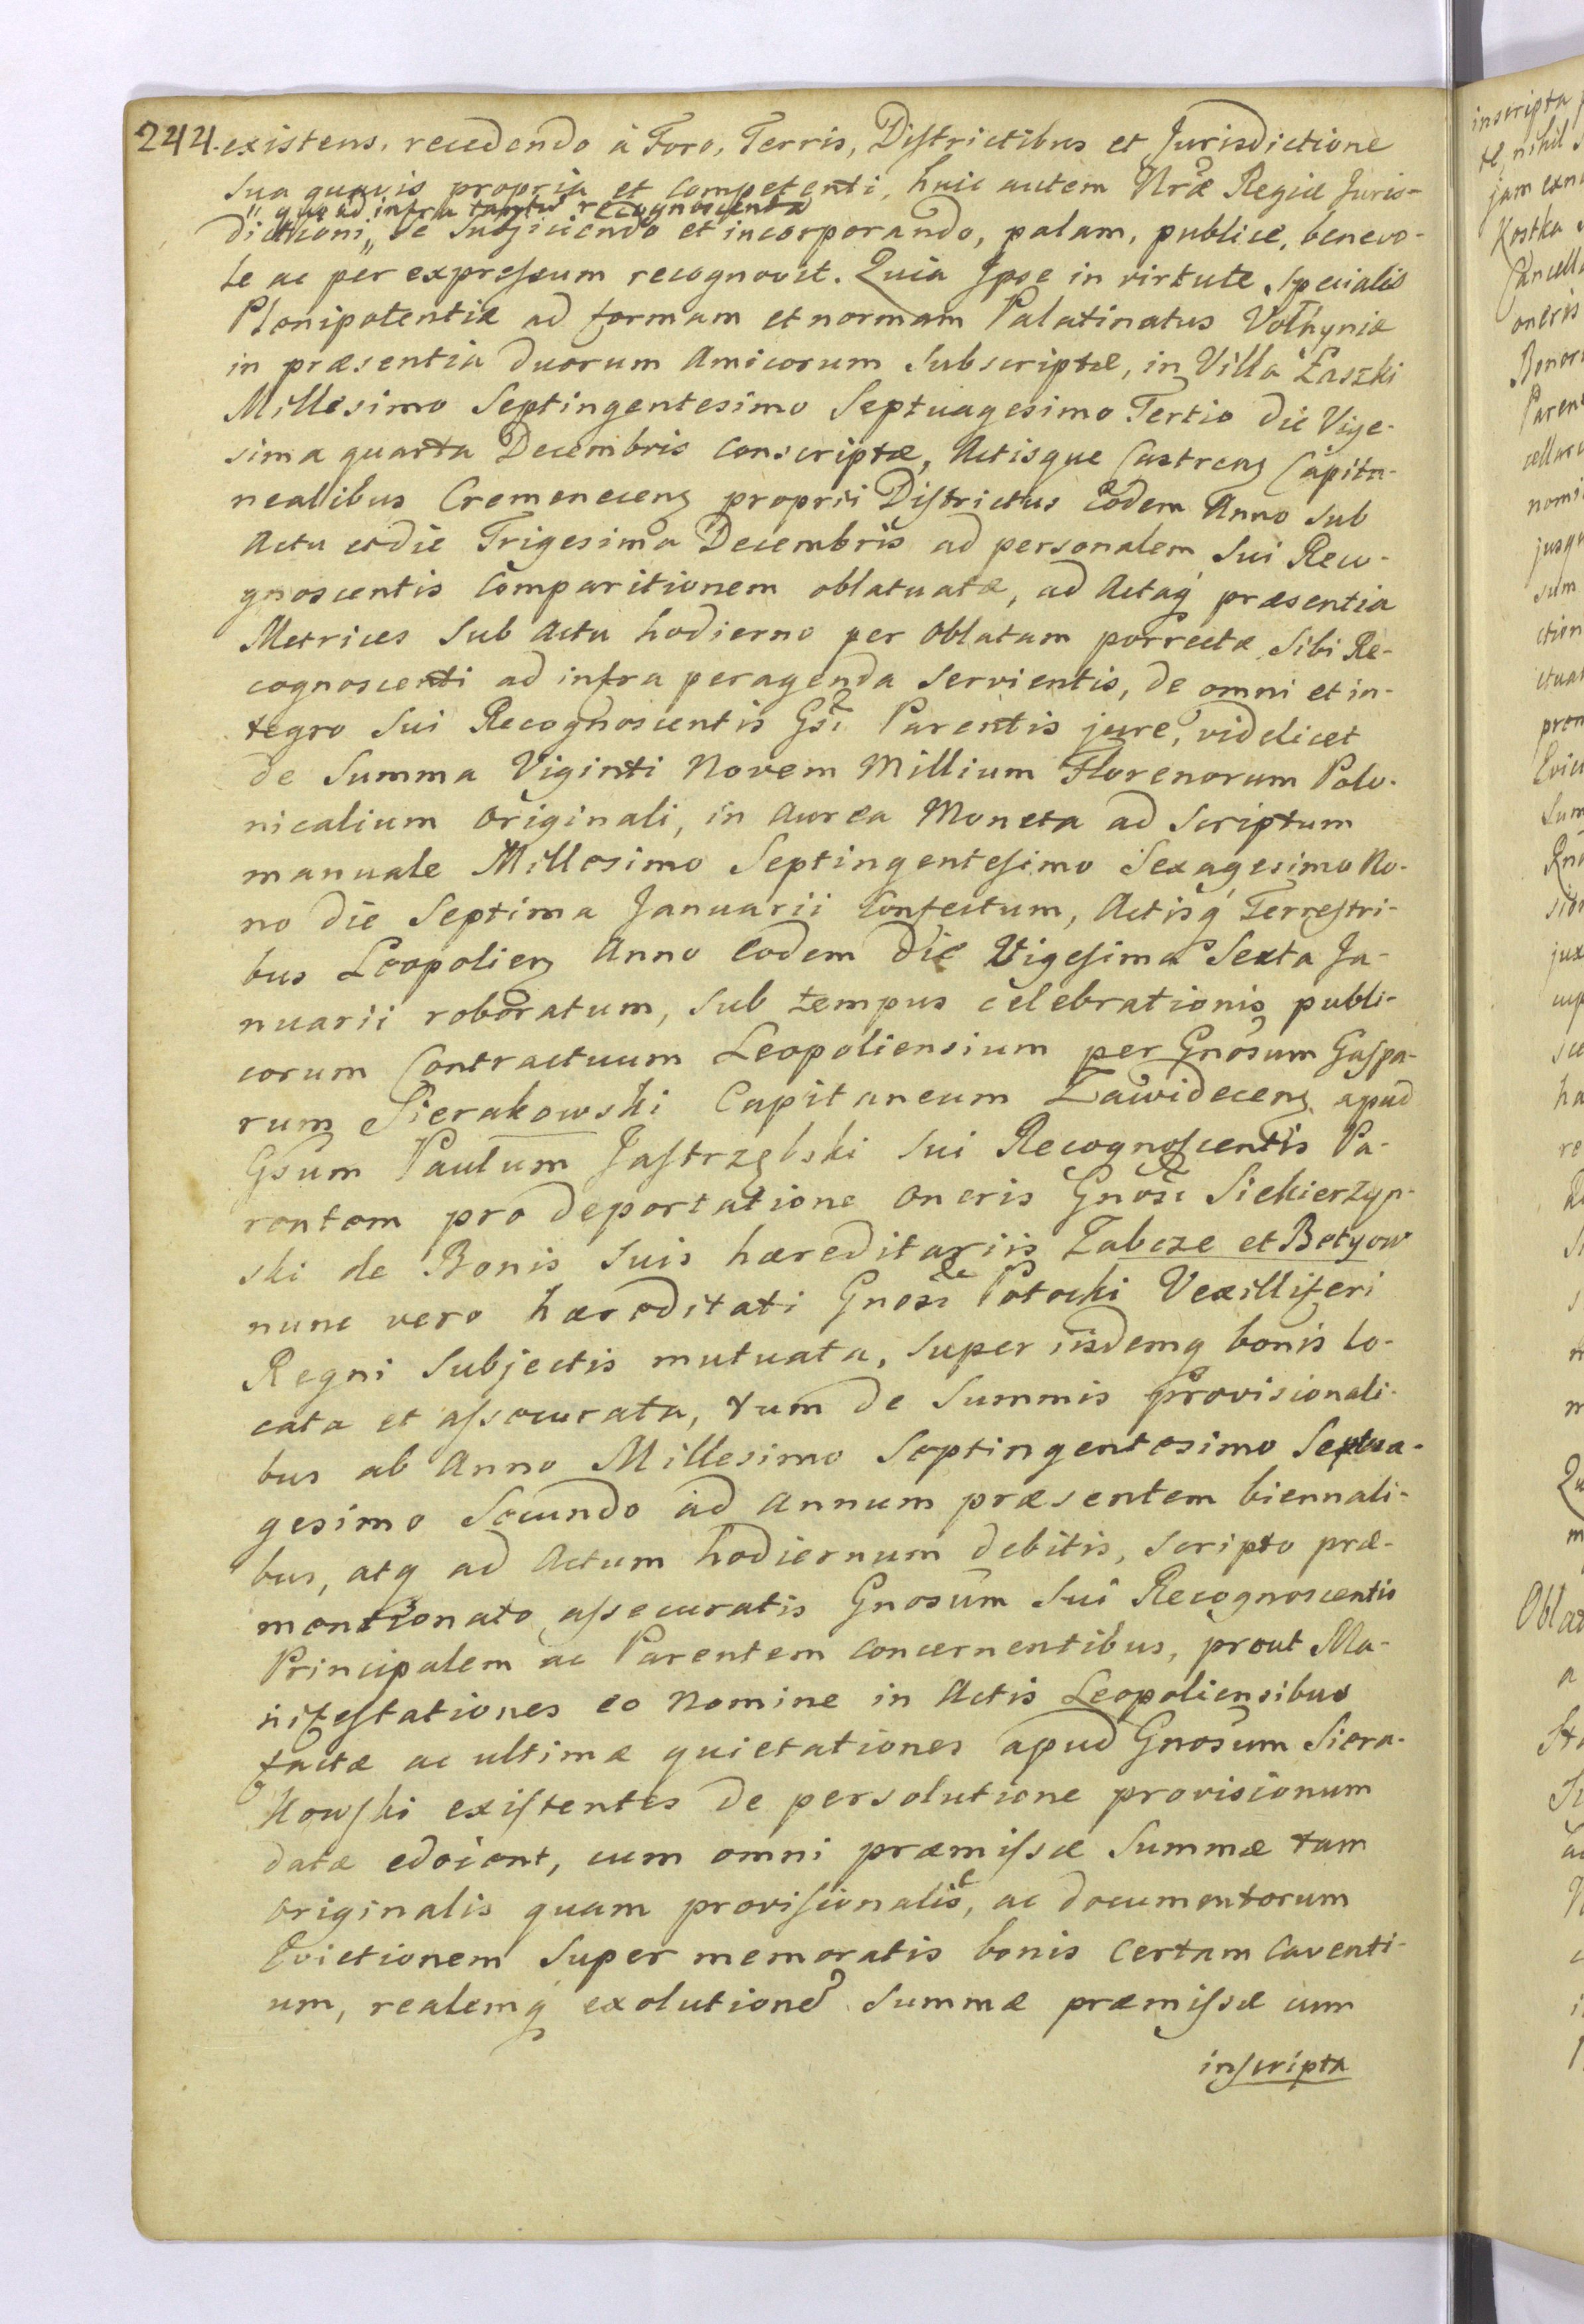 244. existens, recedendo à Foro, Terris, Districtibus et Jurisdictione
sua quavis propria et competenti, huic autem Nræ Regiæ Juris-
"quoad infra tantũ recognoscenda
dictioni " se subjiciendo et incorporando, palam, publice, benevo-
le ac per expressum recognovit. Quia Ipse in virtute specialis
Plenipotentiæ ad formam et normam Palatinatus Volhyniæ
in præsentia duorum Amicorum subscriptæ, in Villa Łaszki
Millesimo Septingentesimo Septuagesimo Tertio die Vige-
sima quarta Decembris conscriptæ, Actisque Castreng Capita-
nealibus Cremeneceng proprii Districtus eodem Anno sub
Actu et die Trigesima Decembris ad personalem sui Reco-
gnoscentis comparitionem oblatuatæ, ad Actaq præsentia
Metrices sub actu hodierno per oblatam porrectæ sibi Re-
cognoscenti ad infra peragenda servientis, de omni et in-
tegro sui Recognoscentis Gsi Parentis jure, videlicet
de Summa Viginti Novem Millium Florenorum Polo-
nicalium originali, in aurea Moneta ad scriptum
manuale Millesimo Septingentesimo Sexagesimo No-
no die Septima Januarii confectum, Actisq Terrestri-
bus Leopolieng Anno eodem die Vigesima Sexta Ja-
nuarii roboratum, sub tempus celebrationis publi-
corum Contractuum Leopoliensium per Gnosum Gaspa-
rum Sierakowski Capitaneum Zawideceng apud
Gsum Paulum Jastrzębski sui Recognoscentis Pa-
rentem pro deportatione oneris Gnosi Siekierzyn-
ski de Bonis suis hæreditariis Zabcze et Betyow
nunc vero hæreditati Gnosi Potocki Vexilliferi
Regni subjectis mutuata, super iisdemq bonis lo-
cata et assecurata, tum de summis provisionali-
bus ab Anno Millesimo Septingentesimo Septua-
gesimo Secundo ad annum præsentem biennali-
bus, atq ad Actum hodiernum debitis, scripto præ-
mentionato assecuratis Gnosum sui Recognoscentis
Principalem ac Parentem concernentibus, prout Ma-
nifestationes eo nomine in Actis Leopoliensibus
factæ ac ultimæ quietationes apud Gnosum Siera-
kowski existentes de persolutione provisionum
datæ edocent, cum omni præmissæ Summæ tam
originalis quam provisionalis, ac documentorum
Evictionem super memoratis bonis certam caventi-
um, realemq exolutione summæ præmissæ cum
inscripta